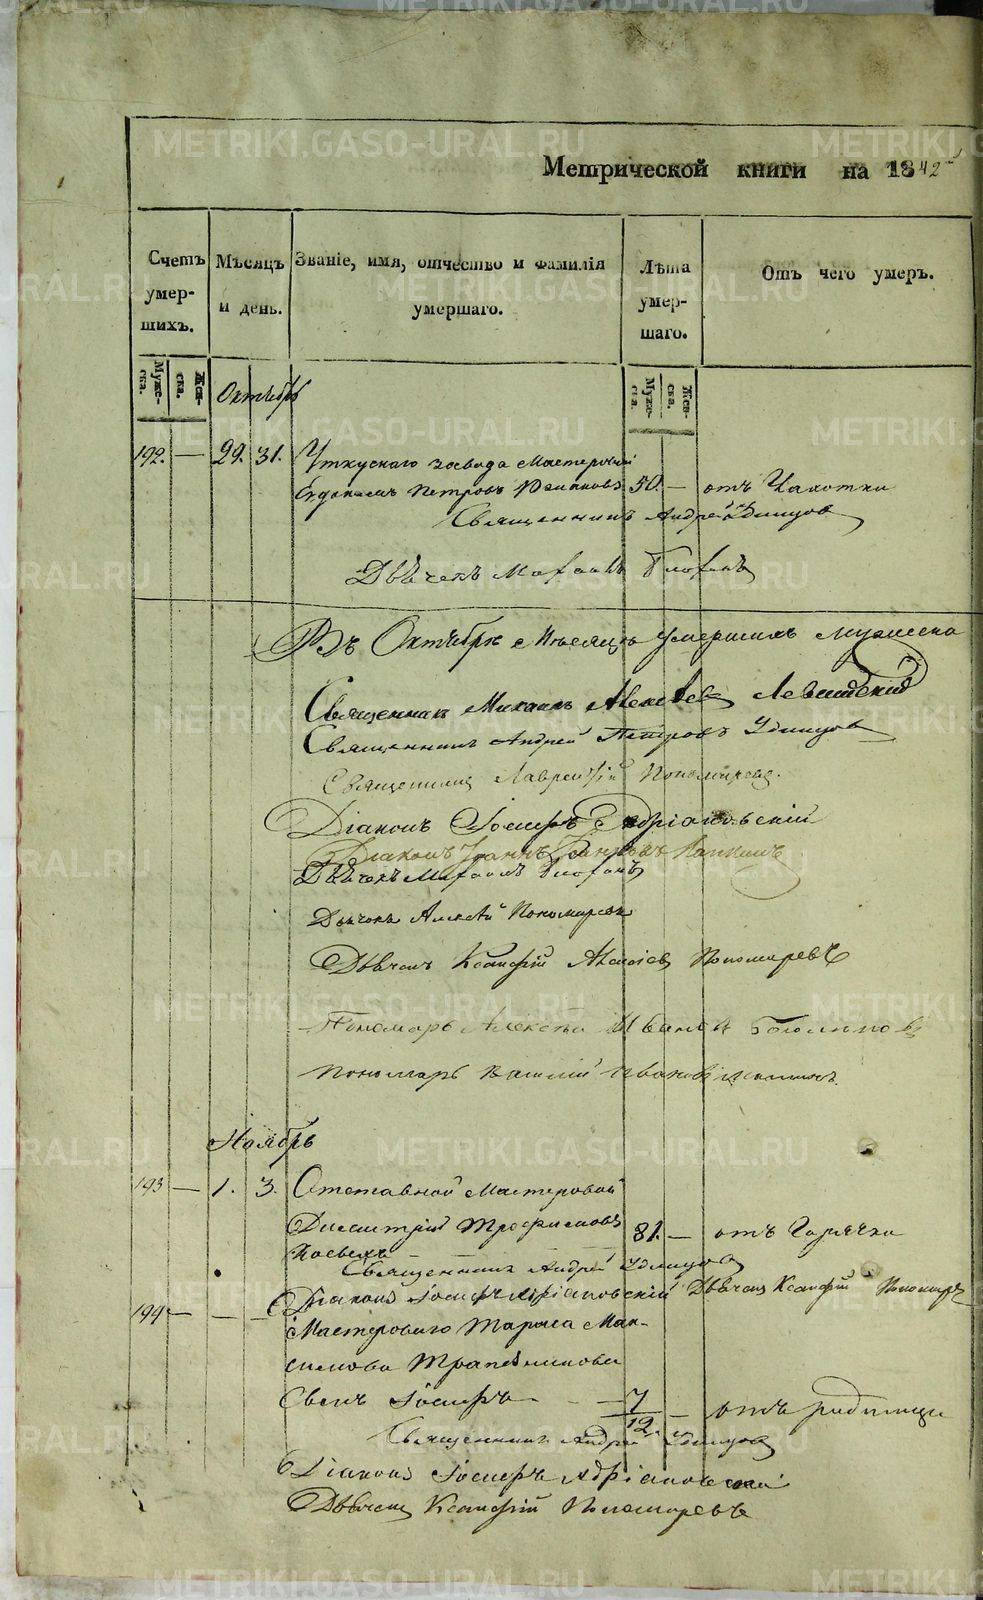 Метрической книги на 1842
Счетъ умер- шихъ.
Мѣсяцъ и день.
Званіе, имя, отчество и фамилія умершаго.
Лѣта умер- шаго.
Отъ чего умеръ.
Муже- ска.
Жен- ска.
Муже- ска.
Жен- ска.
Октябрь
192. — 29. 31. Уткускаго завода Мастеровый
Петровъ 50. — отъ Чахотки
Священникъ Андрей Удинцов
Дьячекъ
Въ Октябрѣ Мѣсяцѣ умершихъ мужеска
Священникъ Михаилъ Алексѣев Левитскій
Священникъ Андрей Петровъ Удинцов
Священник Лаврентій Пономарев.
Діаконъ Іосифъ Адріановскій
Діаконъ Іоаннъ
Дьячекъ
Дьячекъ Алексѣй Пономарев
Дьячекъ Ксанфій Алексіев Пономаревъ
Пономарь Алексѣй Иванов
Пономарь Василій Иванов
Ноябрь
193 — 1. 3. Отставной Мастеровой
Димитрій Трофимовъ 81. — отъ Горячки
Священникъ Андрей Удинцов
Діаконъ Іосифъ Адріановскій Дьячекъ Ксанфій Пономаревъ
194 — — — Мастероваго Тараса Мак-
симова Трапезникова
Сынъ Іосифъ — 7/12. — отъ родимца
Священникъ Андрей Удинцов
Діаконъ Іосифъ Адріановскій
Дьячекъ Ксанфій Пономаревъ
METRIKI.GASO-URAL.RU